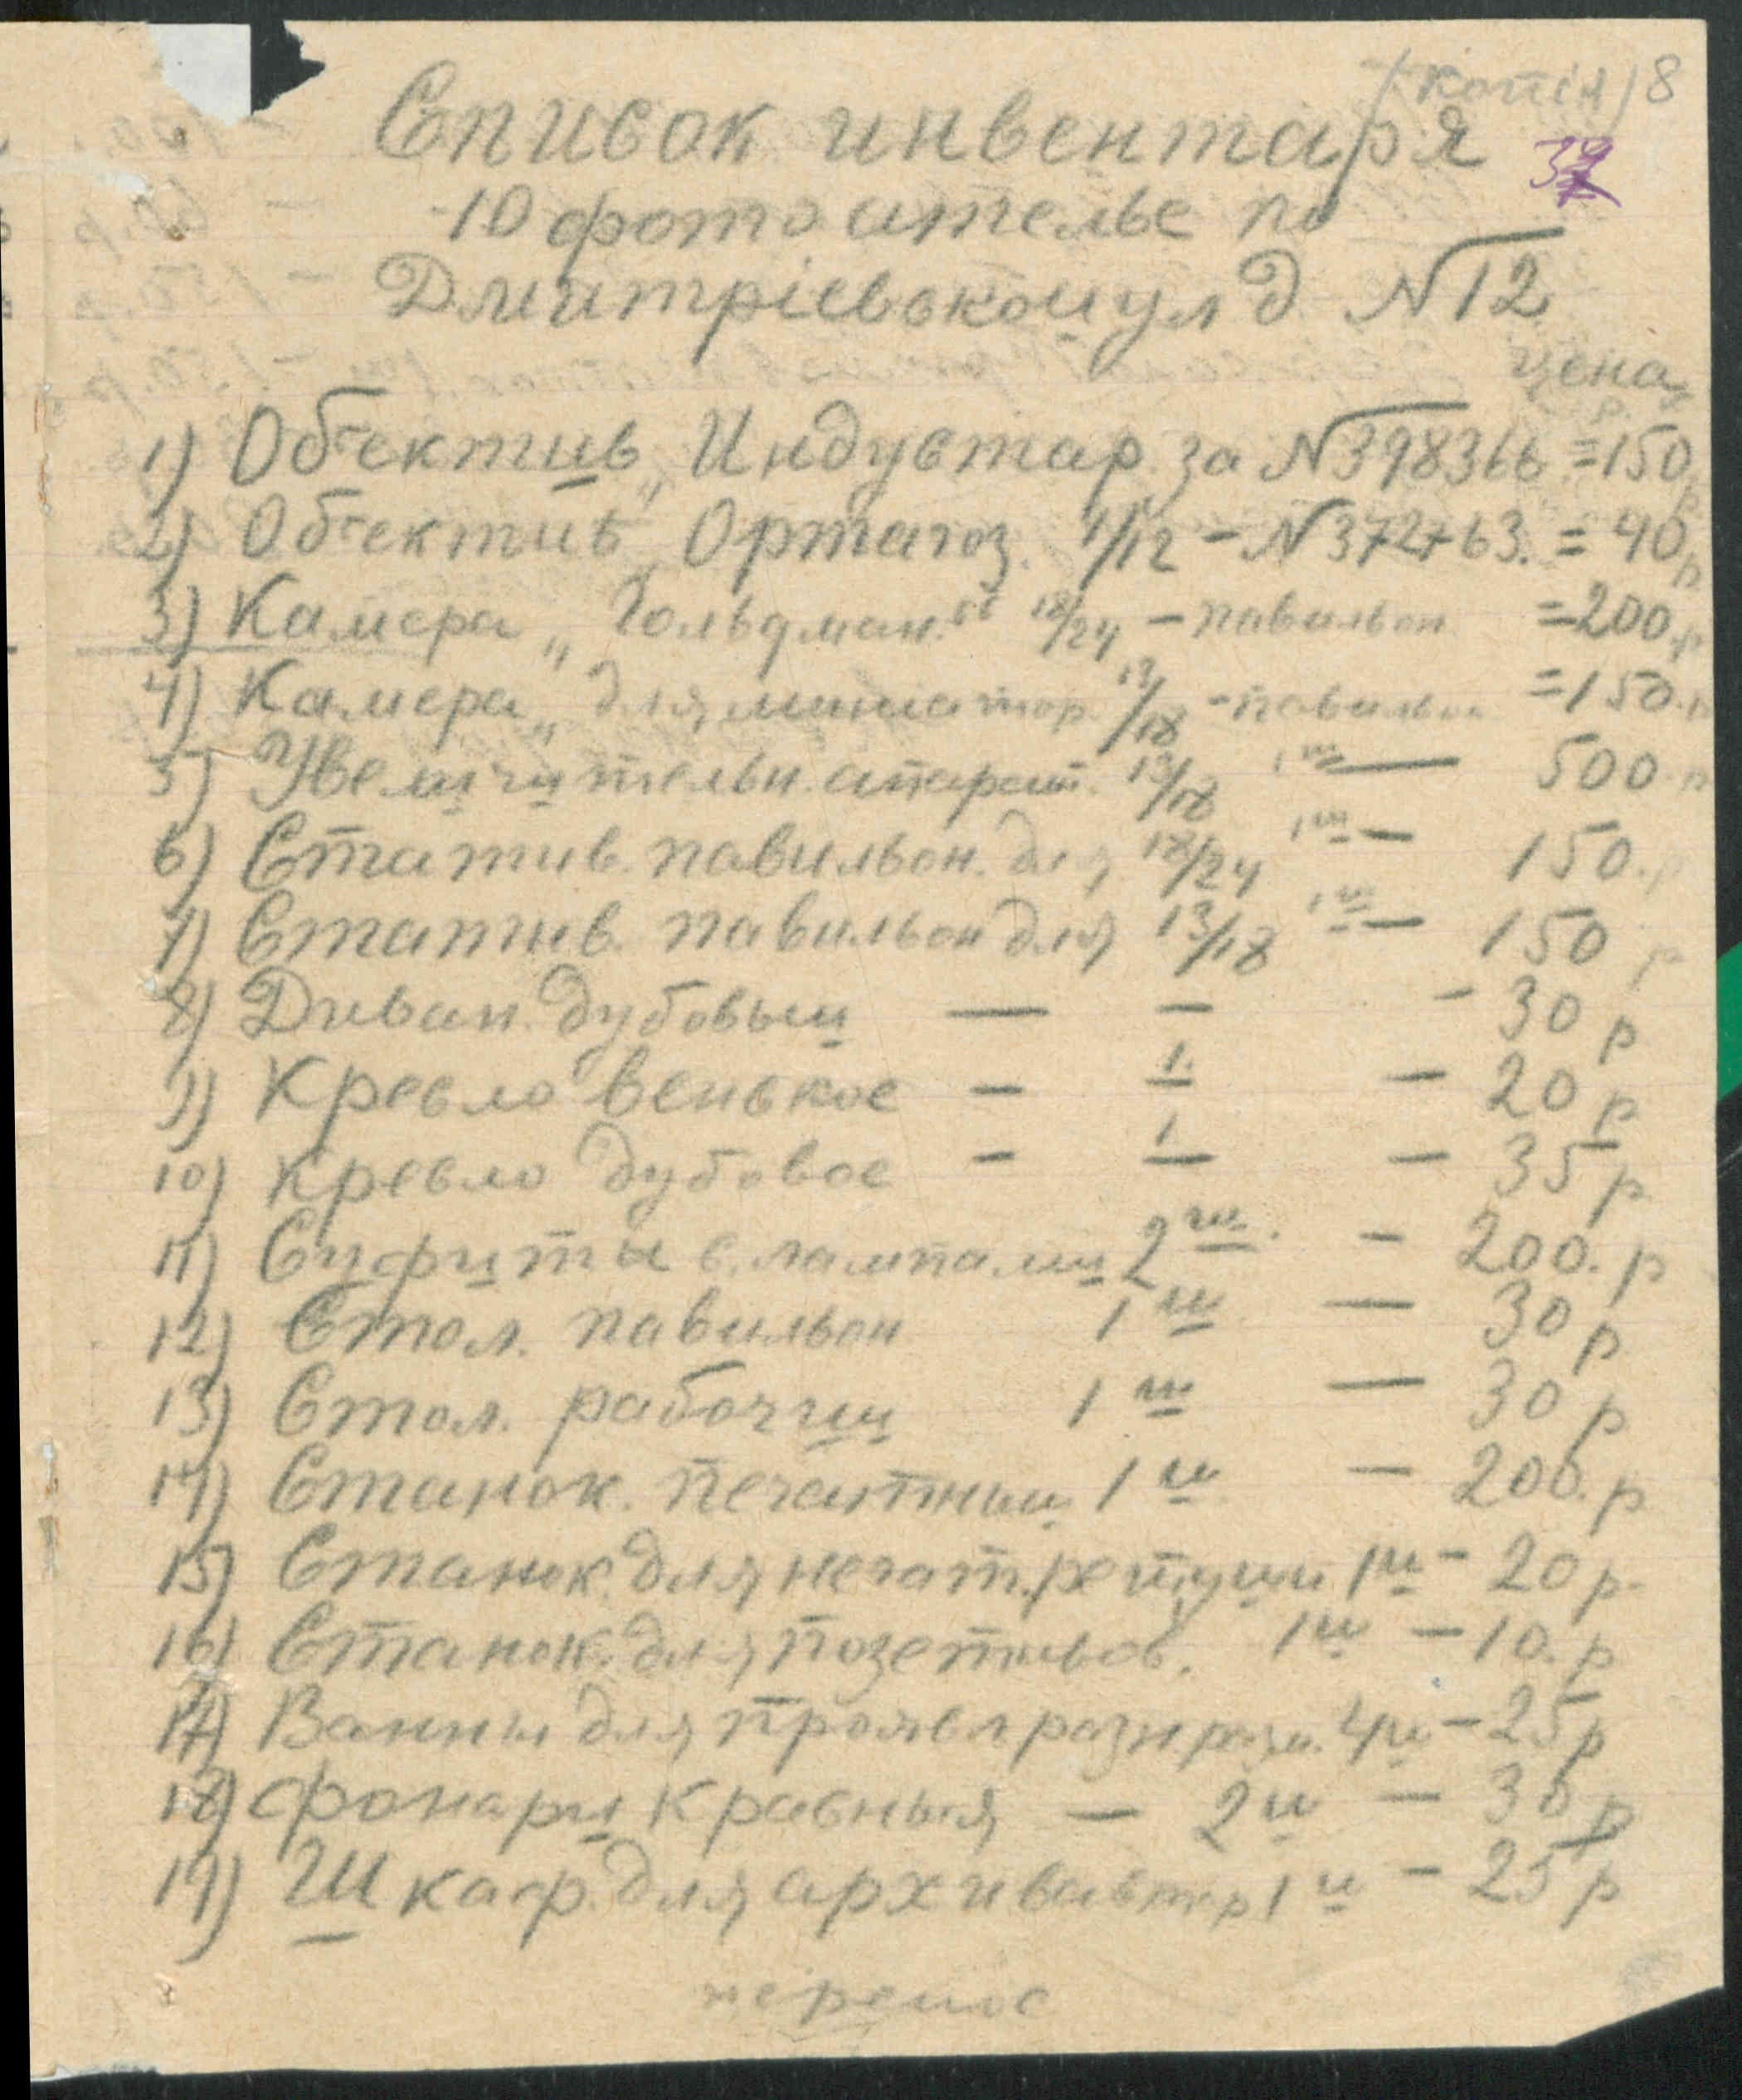 (копія) 8
Список инвентаря
37
10 фото ателье по
Дмитріевской ул д №12
цена
1) Обьектив „Индустар. за №398366 = 150 р
2) Обьектив „Ортагоз. 9/12 – №372763. = 40 р
3) Камера „Гольдман." 18/24 – павильон = 200 р
4) Камера „для миниатюр. 13/18 – павильон = 150 р
5) Увеличительн. апарат. 13/18 1ш — 500 р
6) Статив. павильон. для 18/24 1ш — 150. р
7) Статив. павильон для 13/18 1ш — 150 р
8) Диван. дубовый — – – 30 р
9) Кресло венское – 1 – 20 р
10) Кресло дубовое – 1 – 35 р
11) Суфиты с. лампами 2ш. – 200. р
12) Стол. павильон 1ш — 30 р
13) Стол. рабочий 1ш — 30 р
14) Станок. печатный 1ш – 200. р
15) Станок. для негат. ретуши 1ш – 20 р.
16) Станок. для позетивов. 1ш – 10. р
17) Ванны для проявл разн. разм. 4ш – 25 р
18) Фонари красныя – 2ш – 30 р
19) Шкаф. для архива 1ш – 25 р
перенос